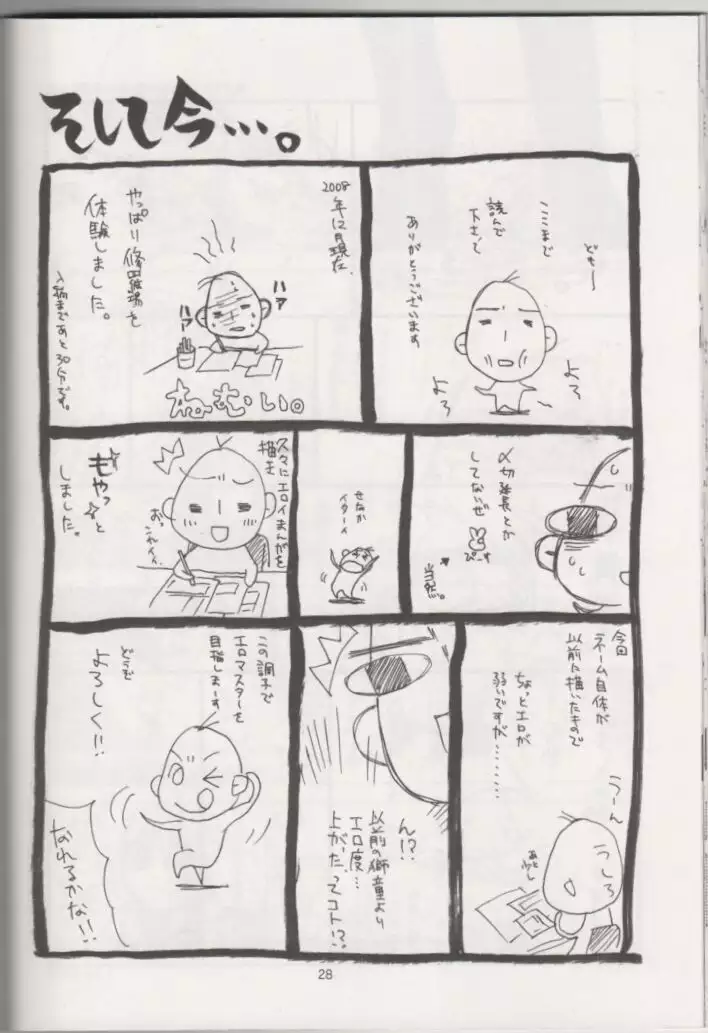 そして今…。
どもー
ここまで
読んで
下さって
ありがとうございます
よろ
よろ
2008年12月現在、
やっぱり修羅場を
体験しました。
入稿まであと30分です。
ハァ
ハァ
ねむい。
〆切延長とか
してないぜ
ぴーす
当然。
せなか
イターイ
久々にエロイまんがを
描き
もやっと
しました。
今回
ネーム自体が
以前に描いたもので
ちょっとエロが
弱いですが………
うーん
うしろ
あと少し
ん!?
以前の獅童より
エロ度…
上がったってコト!?
この調子で
エロマスターを
目指しまーす
どうぞ
よろしく!!
なれるかな!!
28